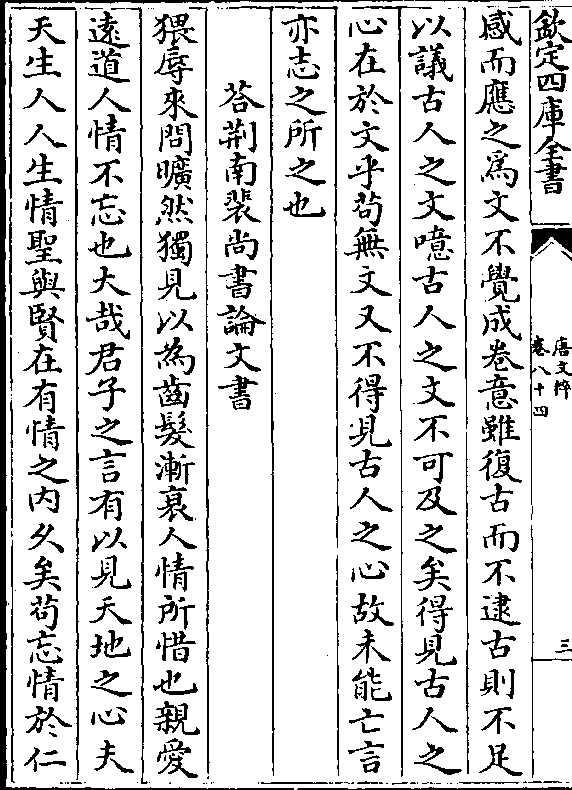 欽定四庫全書
唐文粹
卷八十四
三
感而應之為文不覺成卷意雖復古而不逮古則不足
以議古人之文噫古人之文不可及之矣得見古人之
心在於文乎茍無文又不得見古人之心故未能亡言
亦志之所之也
荅荆南裴尚書論文書
猥辱來問曠然獨見以為齒髮漸衰人情所惜也親愛
逺道人情不忘也大哉君子之言有以見天地之心夫
天生人人生情聖與賢在有情之内久矣茍忘情於仁